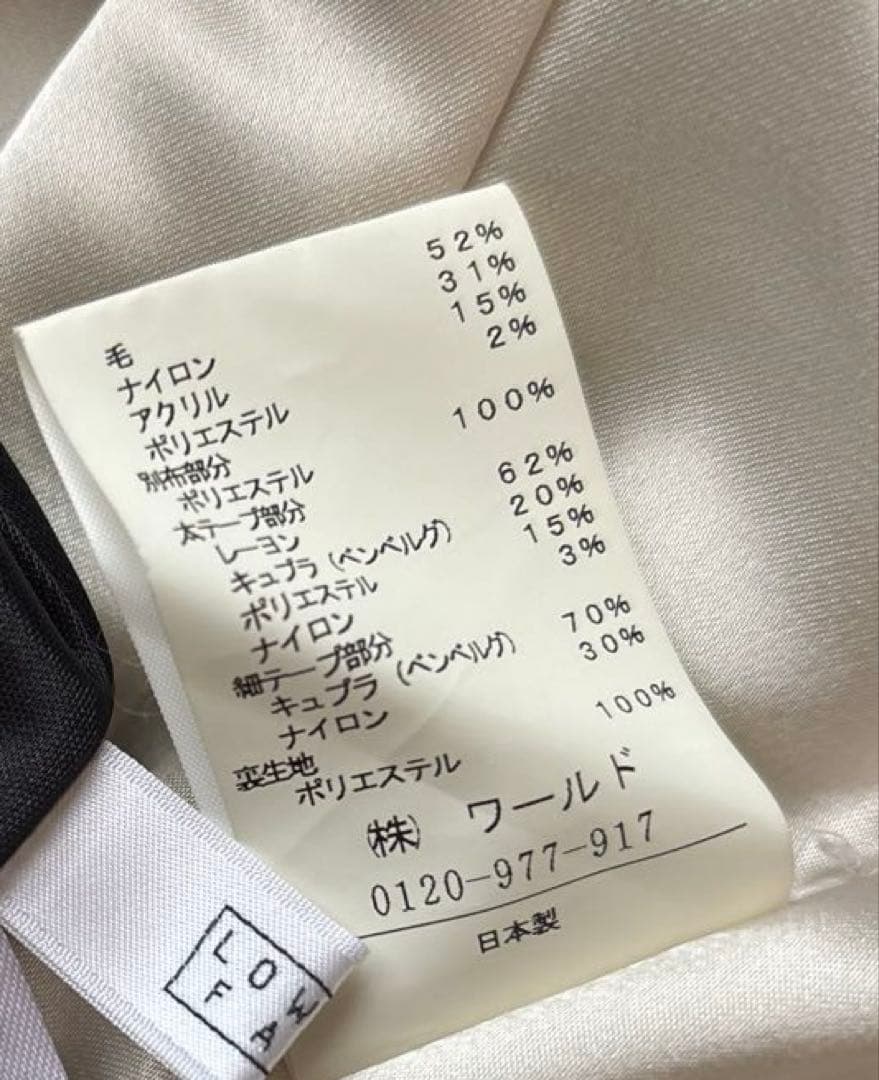 毛 52%
ナイロン 31%
アクリル 15%
ポリエステル 2%
別布部分
ポリエステル 100%
太テープ部分
レーヨン 62%
キュプラ (ベンベルグ) 20%
ポリエステル 15%
ナイロン 3%
細テープ部分
キュプラ (ベンベルグ) 70%
ナイロン 30%
裏生地
ポリエステル 100%
(株) ワールド
0120-977-917
日本製
LOW
FA